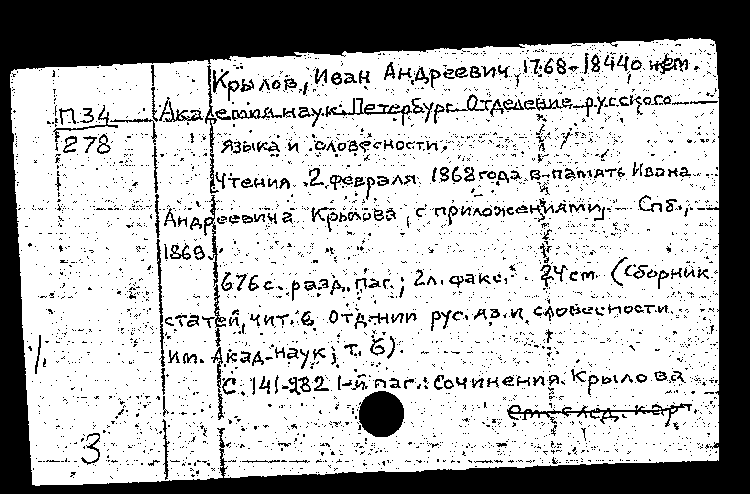 Крылов, Иван Андреевич, 1768-1844 о нем.
П34 Академия наук. Петербург. Отделение русского
278 языка и словесности.
Чтения 2 февраля 1868 года в память Ивана
Андреевича Крылова, с приложениями. Спб.,
1869.
676 с. разд. паг.; 2 л. факс. 24 см (Сборник
статей, чит. в Отд-нии рус. яз. и словесности
им. Акад. наук; т. 6).
С. 141-282 1-й паг.: Сочинения Крылова
см. след. карт.
3